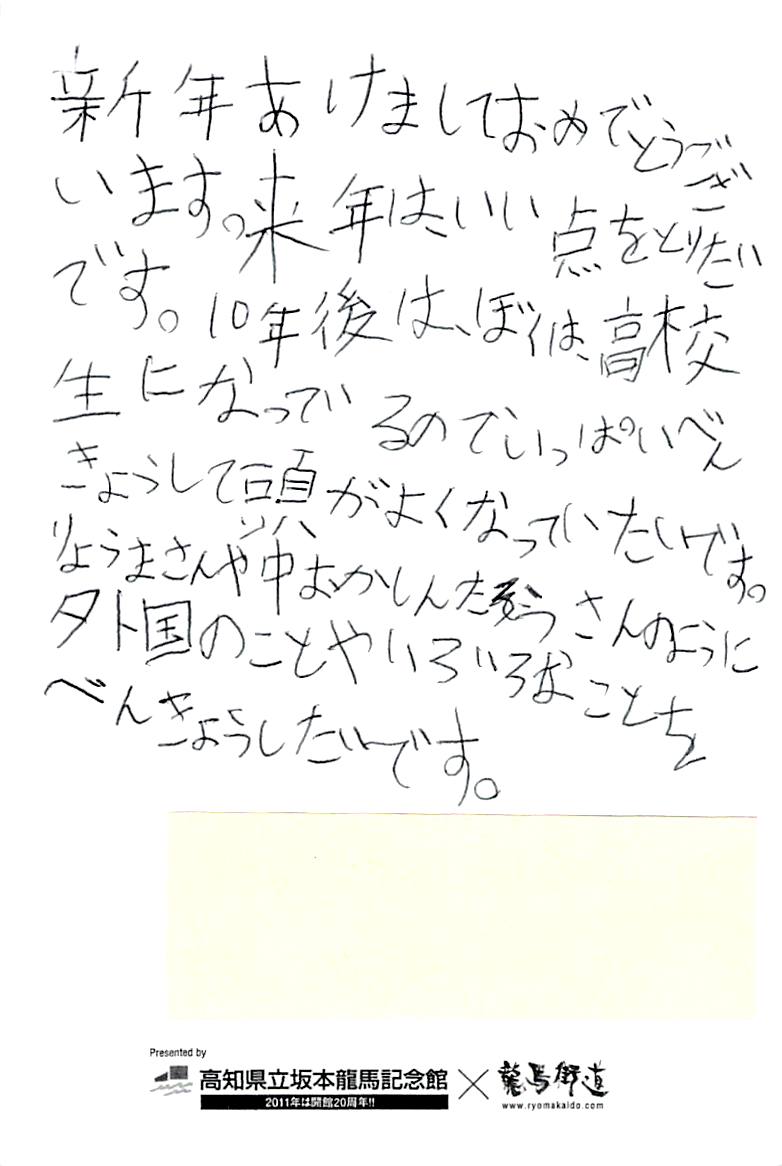 新年あけましておめでとうござ
います。来年は、いい点をとりたい
です。10年後は、ぼくは、高校
生になっているのでいっぱいべん
きょうして頭がよくなっていたいです。
りょうまさんや中おかしんたろうさんのように
外国のことやいろいろなことを
べんきょうしたいです。
Presented by
高知県立坂本龍馬記念館×龍馬街道
2011年は開館20周年!!
www.ryomakaido.com